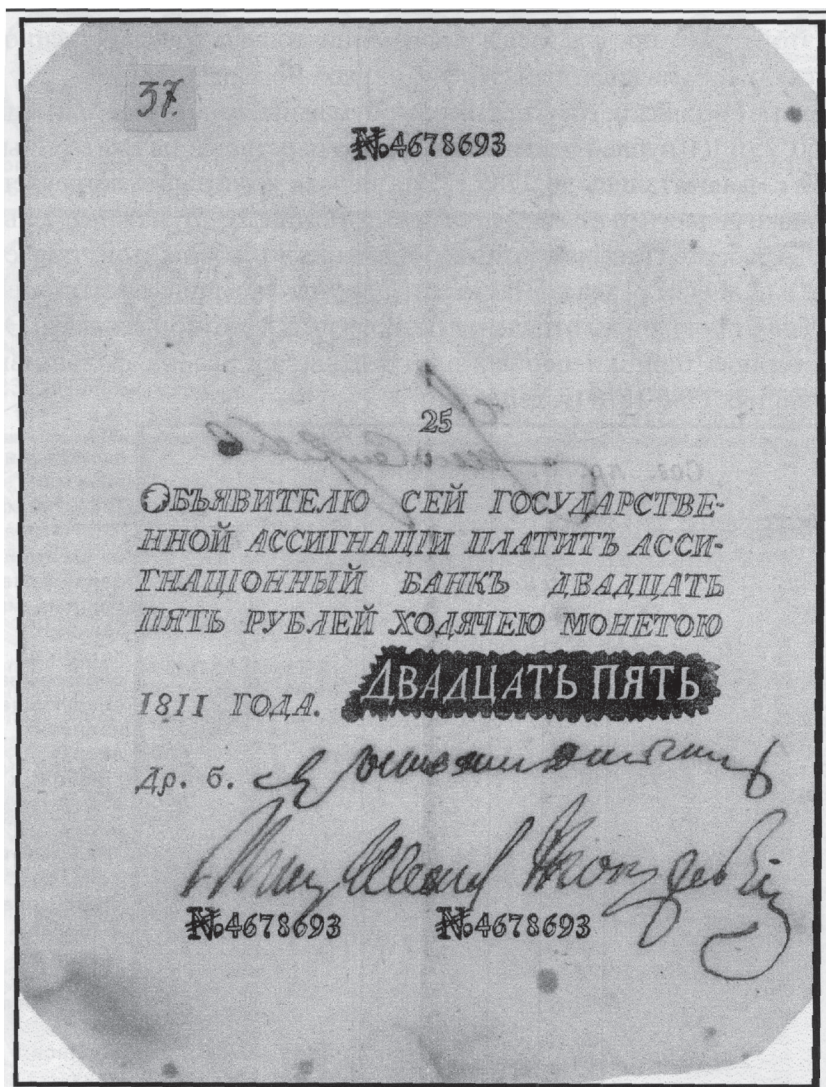 37.
№4678693
25
ОБЪЯВИТЕЛЮ СЕЙ ГОСУДАРСТВЕ-
ННОЙ АССИГНАЦІИ ПЛАТИТЪ АССИ-
ГНАЦІОННЫЙ БАНКЪ ДВАДЦАТЬ
ПЯТЬ РУБЛЕЙ ХОДЯЧЕЮ МОНЕТОЮ
1811 ГОДА. ДВАДЦАТЬ ПЯТЬ
Др. б.
№4678693 №4678693